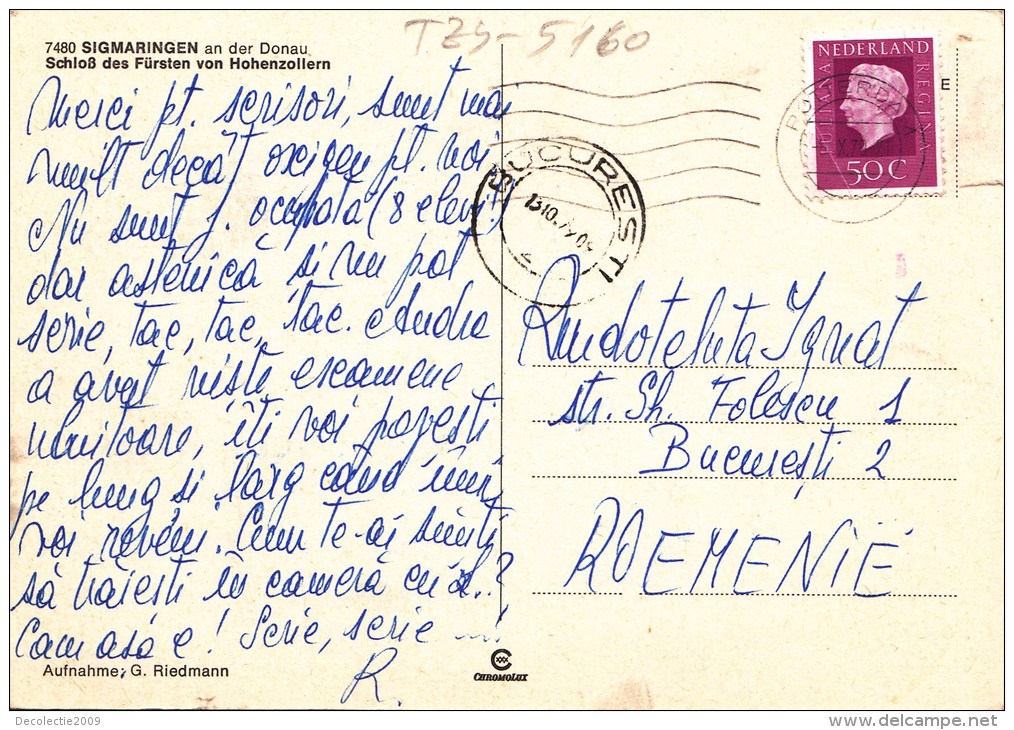 TZS-5160
7480 SIGMARINGEN an der Donau
Schloß des Fürsten von Hohenzollern
Merci pt. scrisori, sunt mai
mult decât oxigen pt. noi
Nu sunt f. ocupata (8 elevi)
dar astenică și nu pot
scrie, tac, tac, tac.
a avut niște examene
uluitoare, îți voi povesti
pe lung și larg când îmi
voi reveni. Cum te-ai simți
să trăiești în cameră cu
Cam așa e! Scrie, scrie ...!
R.
Aufnahme: G. Riedmann
CHROMOLUX
NEDERLAND
JULIANA REGINA
50C
ROTTERDAM
E
BUCURESTI
13.10.
Ignat
str. Sh. Folescu 1
București 2
ROEMENIË
Decolectie2009
delcampe.net